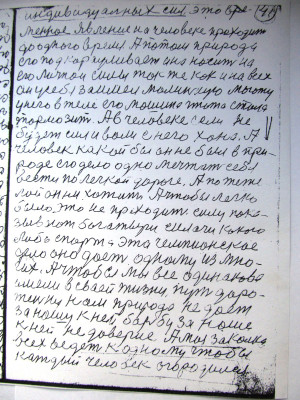 индивидуалных сил. это вре- 141
менное явление на человеке проходить
до одного время А потом природа
его подкарауливает она носит на
его личной силы так же как и на всех
он учеб, заимел малинькую
у него в теле его машина эта стала
тормозит. А в человеке если не
будет силы воли с него хана. А
человек какой бы он не был в при-
роде его дело одно мечтат себя
вести по легкой дороге. А по тяже
лой он ни хотить А чтобы легко
было это не проходить силу пока-
зывают богатыри силачи какого
либо спорта эта чемпионское
дело оно дает одному из мно-
гих. А чтобы мы все одинаково
имели в своей жизни, путь доро-
жинку нам природа не дает
за нашу к ней борбу, за наше
к ней не доверие. А моя закалка
всех ведет к одному чтобы
каждый человек огородился